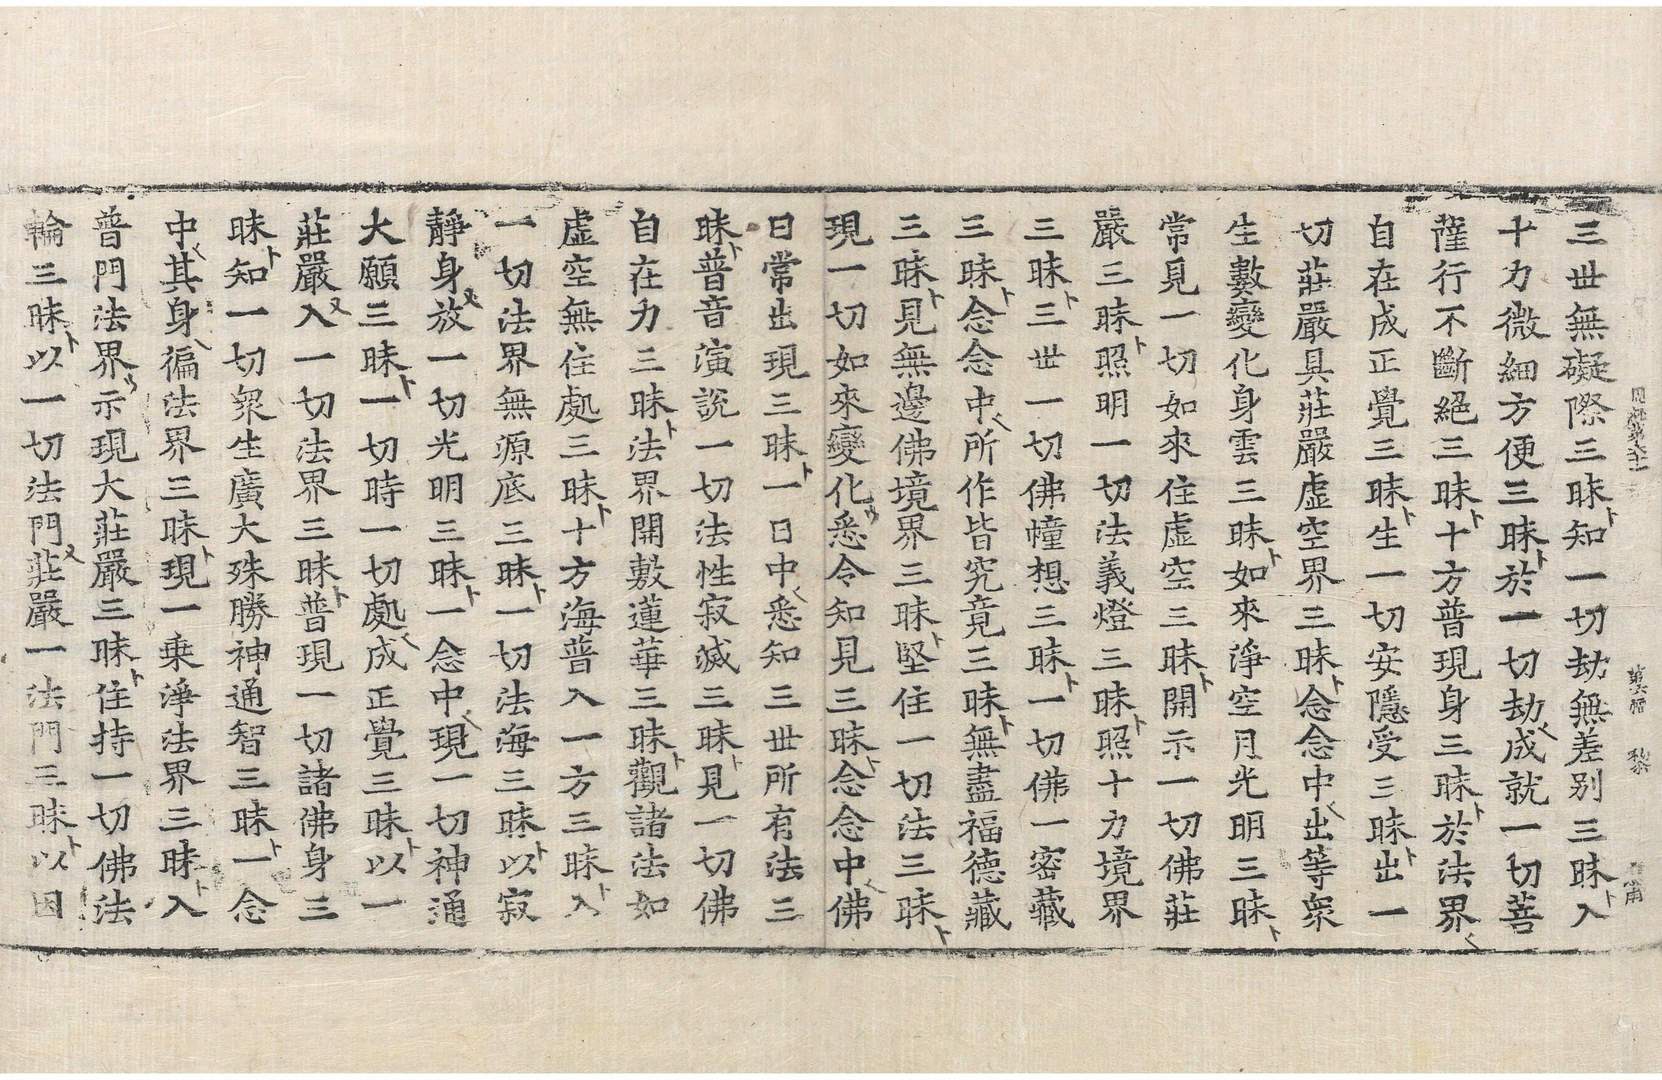 三世無礙際三昧知一切劫無差別三昧入
十力微細方便三昧於一切劫成就一切菩
薩行不斷絕三昧十方普現身三昧於法界
自在成正覺三昧生一切安隱受三昧出一
切莊嚴具莊嚴虛空界三昧念念中出等衆
生數變化身雲三昧如來淨空月光明三昧
常見一切如來住虛空三昧開示一切佛莊
嚴三昧照明一切法義燈三昧照十力境界
三昧三世一切佛幢想三昧一切佛一密藏
三昧念念中所作皆究竟三昧無盡福德藏
三昧見無邊佛境界三昧堅住一切法三昧
現一切如來變化悉令知見三昧念念中佛
日常出現三昧一日中悉知三世所有法三
昧普音演說一切法性寂滅三昧見一切佛
自在力三昧法界開敷蓮華三昧觀諸法如
虛空無住處三昧十方海普入一方三昧入
一切法界無源底三昧一切法海三昧以寂
靜身放一切光明三昧一念中現一切神通
大願三昧一切時一切處成正覺三昧以一
莊嚴入一切法界三昧普現一切諸佛身三
昧知一切衆生廣大殊勝神通智三昧一念
中其身徧法界三昧現一乘淨法界三昧入
普門法界示現大莊嚴三昧住持一切佛法
輪三昧以一切法門莊嚴一法門三昧以因